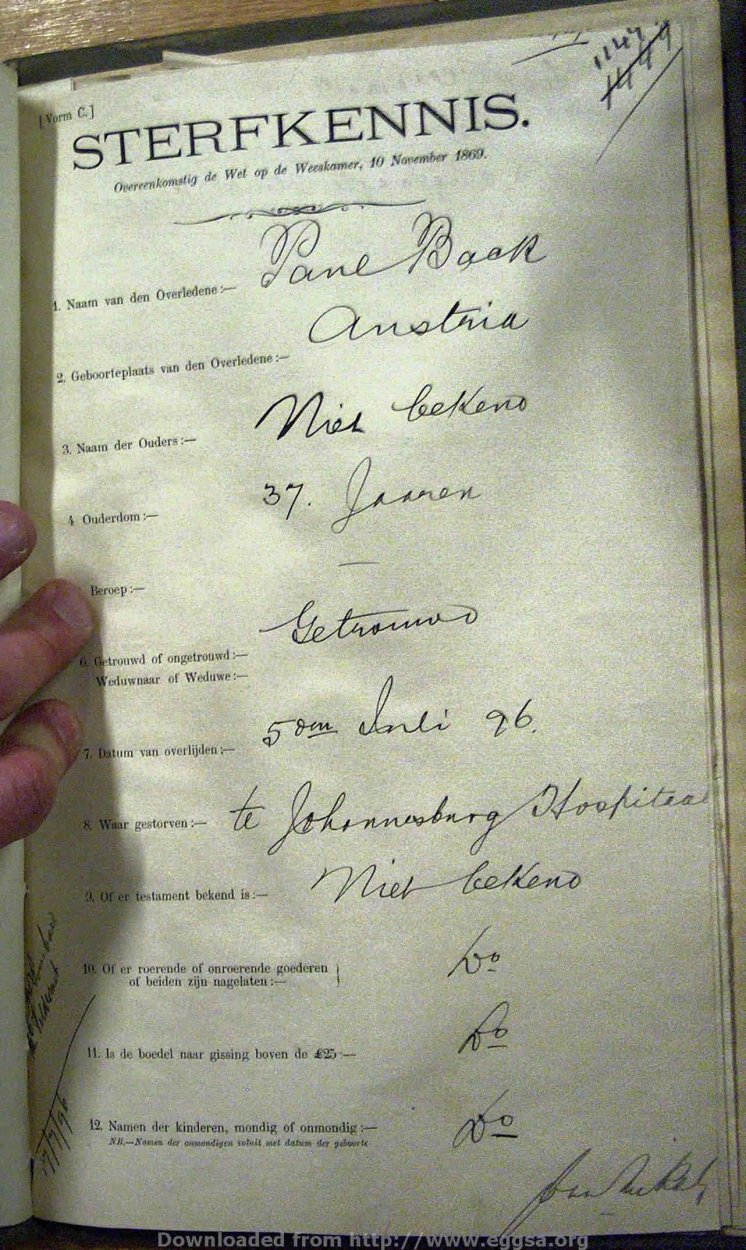 [Vorm C.]
STERFKENNIS.
Overeenkomstig de Wet op de Weeskamer, 10 November 1869.
1. Naam van den Overledene:— Pane Back
2. Geboorteplaats van den Overledene:— Austria
3. Naam der Ouders:— Niet bekend
4 Ouderdom:— 37. Jaaren
Beroep:— —
6. Getrouwd of ongetrouwd:— Getrouwd
Weduwnaar of Weduwe:—
7. Datum van overlijden:— 5den Juli 96.
8. Waar gestorven:— te Johannesburg Hospitaal
9. Of er testament bekend is:— Niet bekend
10. Of er roerende of onroerende goederen
of beiden zijn nagelaten:— Do
11. Is de boedel naar gissing boven de £25:— Do
12. Namen der kinderen, mondig of onmondig:— Do
NB.—Namen der onmondigen voluit met datum der geboorte
17/7/96
Downloaded from http://www.eggsa.org